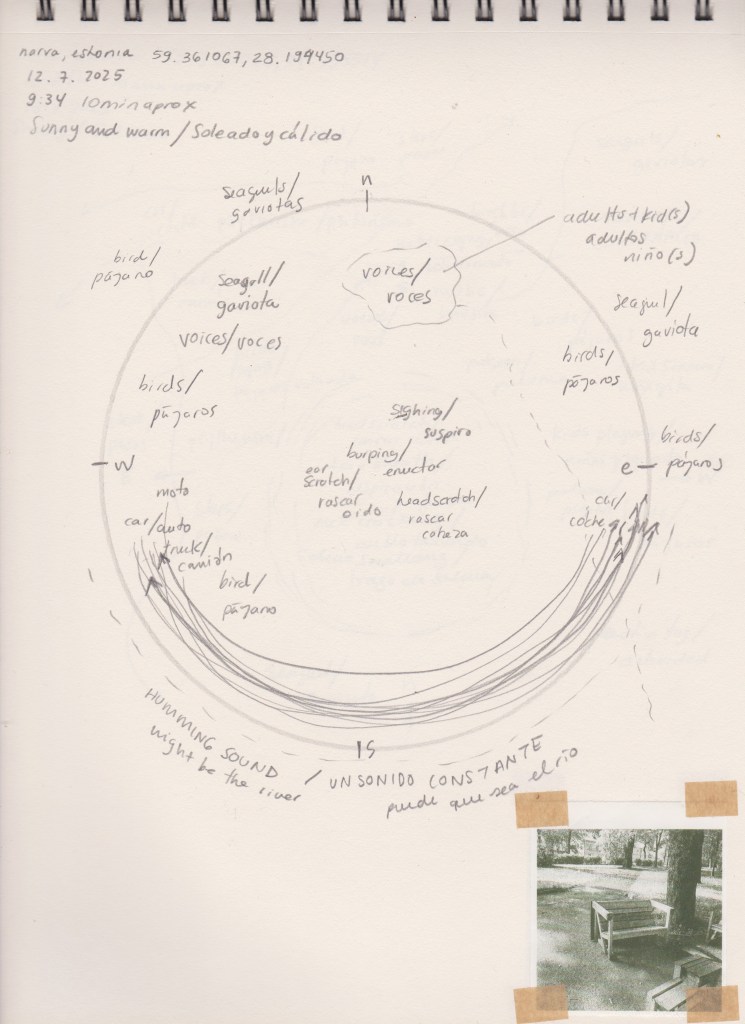 narva, estonia 59.361067, 28.194450
12.7.2025
9:34 10min aprox
Sunny and warm / Soleado y cálido
n
seagulls/
gaviotas
adults + kid(s)
adultos
niño(s)
bird/
pájaro
seagull/
gaviota
voices/
voces
seagul/
gaviota
voices/voces
birds/
pájaros
birds/
pájaros
sighing/
suspiro
birds/
pájaros
w
burping/
eructar
e
ear
scratch/
rascar
oido
headscratch/
rascar
cabeza
moto
car/auto
truck/
camión
car/
coche
bird/
pájaro
S
HUMMING SOUND / UN SONIDO CONSTANTE
might be the river
puede que sea el río